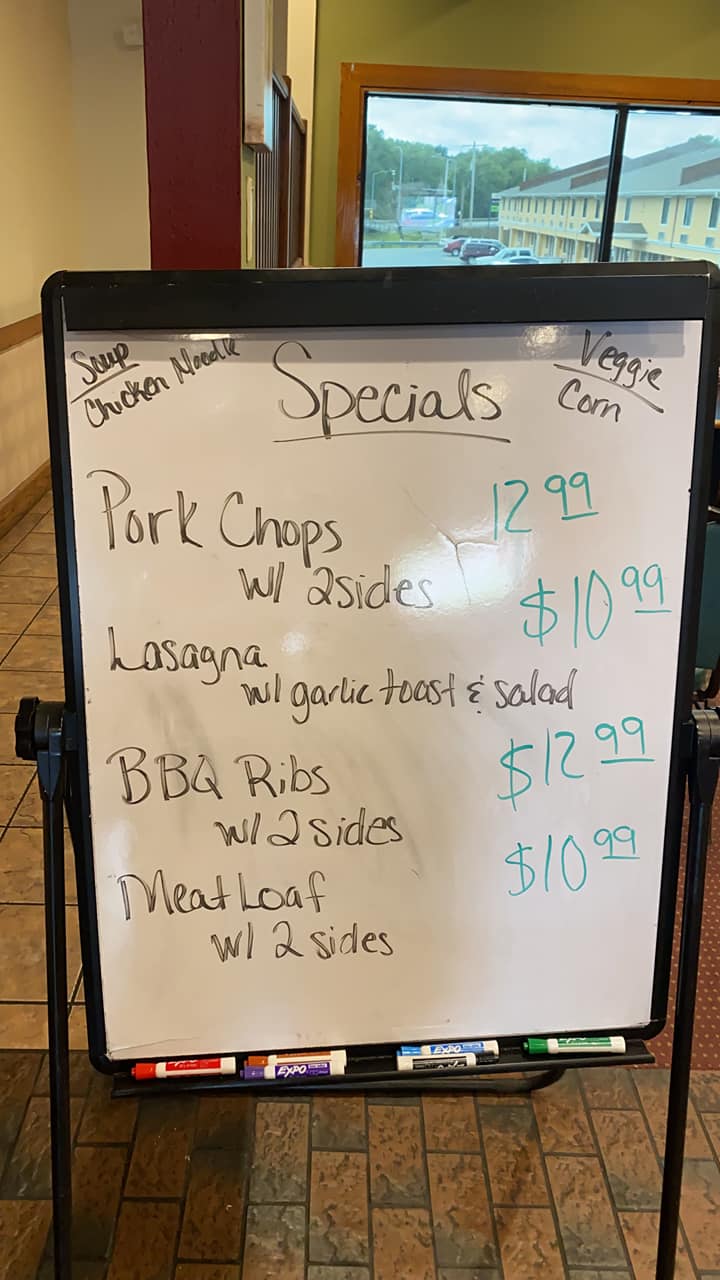 Soup
Chicken Noodle
Specials
Veggie
Corn
Pork Chops 12 99
w/ 2sides
$10 99
Lasagna
w/ garlic toast & salad
BBQ Ribs $12 99
w/ 2 sides
$10 99
Meat Loaf
w/ 2 sides
EXPO
EXPO